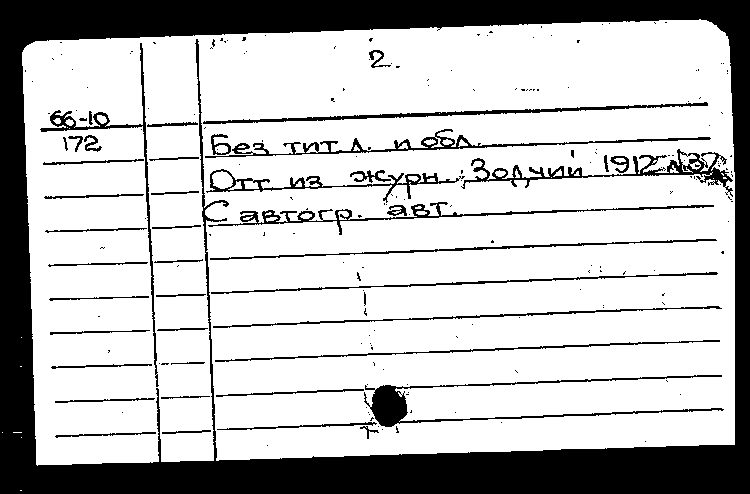 2.
66-10
172
Без тит. л. и обл.
Отт из журн. "Зодчий" 1912 №37
С автогр. авт.